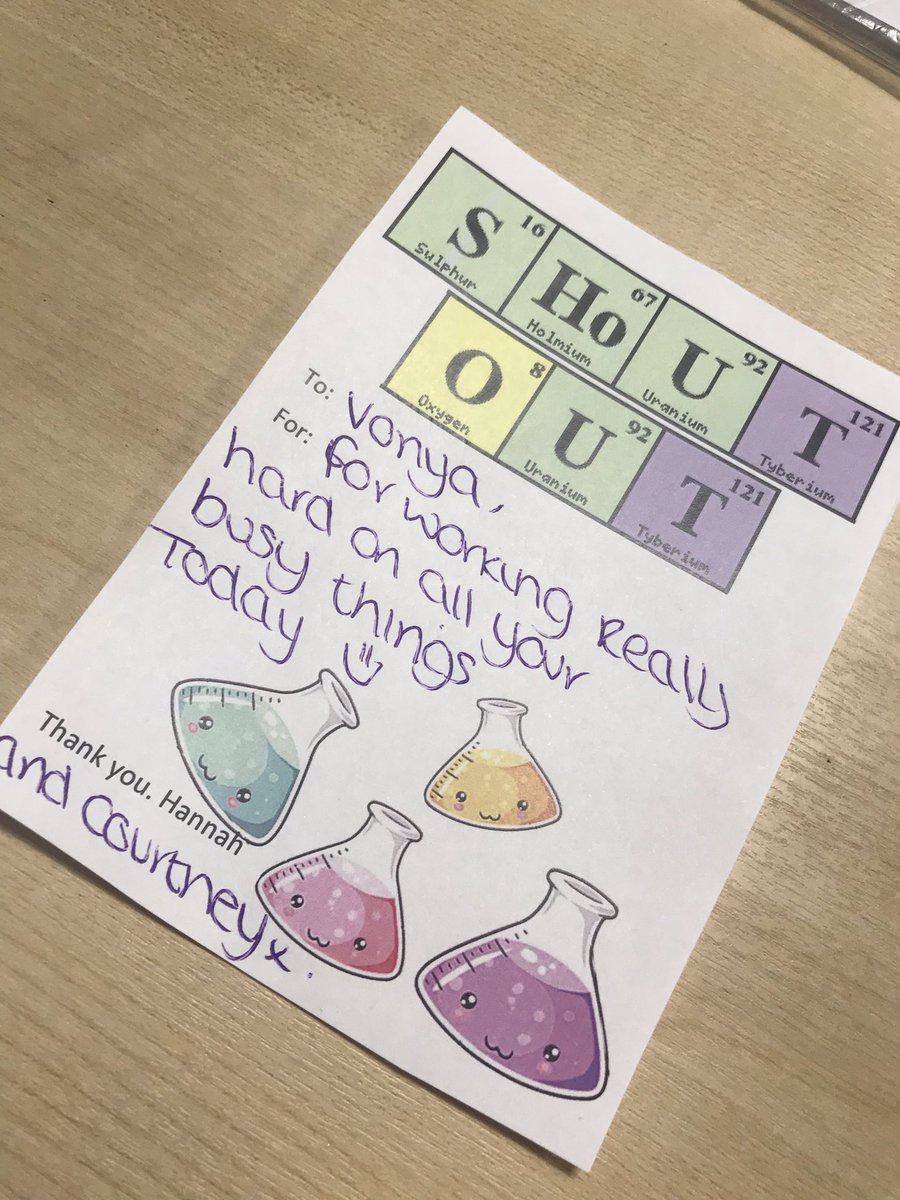 16 67 92 121
S Ho U T
Sulphur Holmium Uranium Tyberium
8 92 121
O U T
Oxygen Uranium Tyberium
To: Vonya,
For: for working Really
hard on all your
busy things
Today
Thank you. Hannah
and Courtney x.